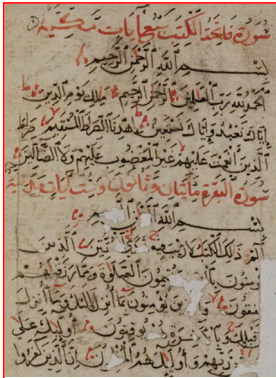 سورة فاتحة الكتب سبع آيات مكية
بسم الله الرحمن الرحيم
الحمد لله رب العلمين الرحمن الرحيم ملك يوم الدين
اياك نعبد واياك نستعين اهدنا الصراط المستقيم صراط
الذين انعمت عليهم غير المغضوب عليهم ولا الضالين
سورة البقرة مائتان وثمانون وست آيات
بسم الله الرحمن الرحيم
الم ذلك الكتب لا ريب فيه للمتقين الذين
يؤمنون يقيمون الصلوة ومما رزقنهم
ينفقون والذين يؤمنون بما انزل اليك وما انزل
قبلك يوقنون اولئك على
ربهم واولئك هم ان الذين كفروا